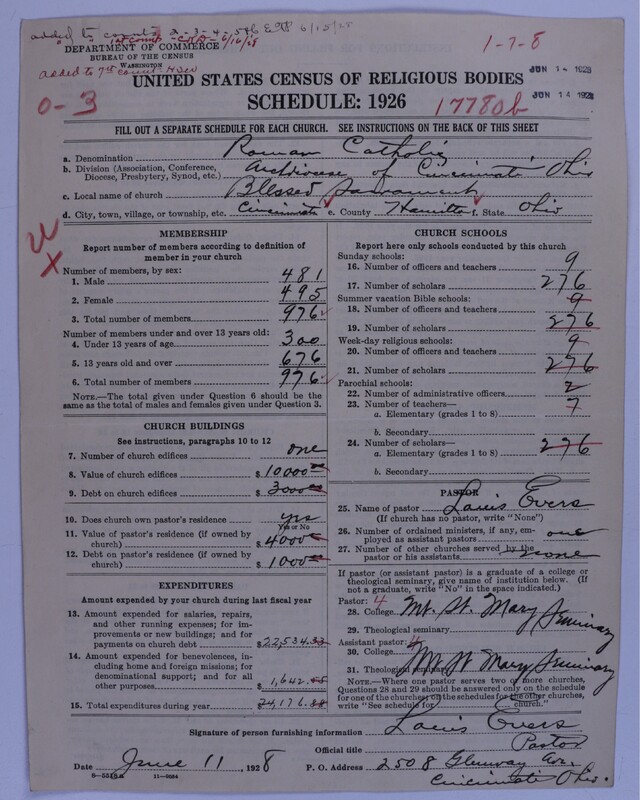 added to counts 2-3-4-5&6 ESB 6/15/28
1st count 6/16/28
DEPARTMENT OF COMMERCE
BUREAU OF THE CENSUS
WASHINGTON
added to 7th count
1-7-8
JUN 14 1928
JUN 14 1928
UNITED STATES CENSUS OF RELIGIOUS BODIES
SCHEDULE: 1926
0-3
17780b
FILL OUT A SEPARATE SCHEDULE FOR EACH CHURCH. SEE INSTRUCTIONS ON THE BACK OF THIS SHEET
a. Denomination Roman Catholic
b. Division (Association, Conference, Diocese, Presbytery, Synod, etc.) Archdiocese of Cincinnati Ohio
c. Local name of church Blessed Sacrament
d. City, town, village, or township, etc. Cincinnati e. County Hamilton f. State Ohio
MEMBERSHIP
Report number of members according to definition of
member in your church
Number of members, by sex:
1. Male 481
2. Female 495
3. Total number of members 976
Number of members under and over 13 years old:
4. Under 13 years of age 300
5. 13 years old and over 676
6. Total number of members 976
NOTE.—The total given under Question 6 should be
the same as the total of males and females given under Question 3.
CHURCH BUILDINGS
See instructions, paragraphs 10 to 12
7. Number of church edifices one
8. Value of church edifices $ 10000
9. Debt on church edifices $ 3000
10. Does church own pastor's residence yes
Yes or No
11. Value of pastor's residence (if owned by
church) $ 4000
12. Debt on pastor's residence (if owned by
church) $ 1000
EXPENDITURES
Amount expended by your church during last fiscal year
13. Amount expended for salaries, repairs,
and other running expenses; for im-
provements or new buildings; and for
payments on church debt $ 22,534.33
14. Amount expended for benevolences, in-
cluding home and foreign missions; for
denominational support; and for all
other purposes $ 1,642.
15. Total expenditures during year $ 24,176.
CHURCH SCHOOLS
Report here only schools conducted by this church
Sunday schools:
16. Number of officers and teachers 9
17. Number of scholars 276
Summer vacation Bible schools:
18. Number of officers and teachers 9
19. Number of scholars 276
Week-day religious schools:
20. Number of officers and teachers 9
21. Number of scholars 276
Parochial schools:
22. Number of administrative officers 2
23. Number of teachers—
a. Elementary (grades 1 to 8) 7
b. Secondary
24. Number of scholars—
a. Elementary (grades 1 to 8) 276
b. Secondary
PASTOR
25. Name of pastor Louis Evers
(If church has no pastor, write "None")
26. Number of ordained ministers, if any, em-
ployed as assistant pastors one
27. Number of other churches served by the
pastor or his assistants none
If pastor (or assistant pastor) is a graduate of a college or
theological seminary, give name of institution below. (If
not a graduate, write "No" in the space indicated.)
Pastor: 4
28. College Mt. St. Mary Seminary
29. Theological seminary
Assistant pastor:
30. College
31. Theological seminary Mt St Mary Seminary
NOTE.—Where one pastor serves two or more churches,
Questions 28 and 29 should be answered only on the schedule
for one of the churches; on the schedules for the other churches,
write "See schedule for church."
Signature of person furnishing information Louis Evers
Official title Pastor
Date June 11, 1928 P. O. Address 2508 Glenway Av.
Cincinnati Ohio.
11—9064